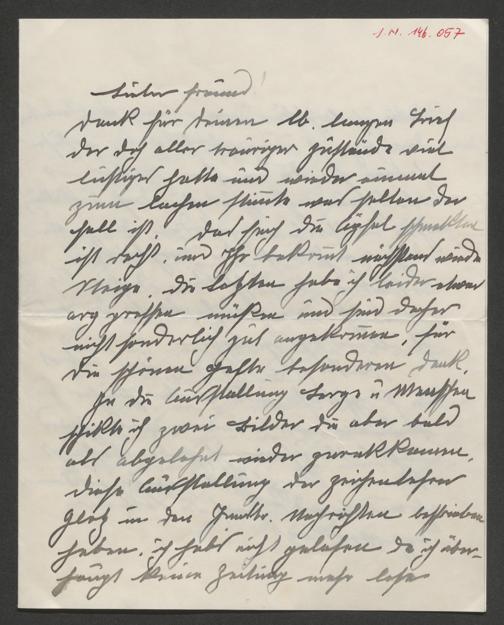 J.N. 146.057
Lieber Freund!
Dank für Deinen lb. langen Brief
der doch aller trauriger Zustände viel
lustiges hatte und wieder einmal
zum lachen stimmte was selten der
Fall ist. Das Euch die Äpfel schmekten
ist recht, und Ihr bekomt nächstens wieder
einige, die letzten habe ich leider etwas
arg pressen müßen und sind daher
nicht sonderlich gut angekommen, für
die schönen Hefte besonderen Dank.
In die Ausstellung Berge u Menschen
schikte ich zwei Bilder die aber bald
als abgelehnt wieder zurükkamen,
diese Ausstellung der Zeichenlehrer
in den Innsbr. Nachrichten beschrieben
haben, ich habs nicht gelesen da ich über-
haupt keine Zeitung mehr lese